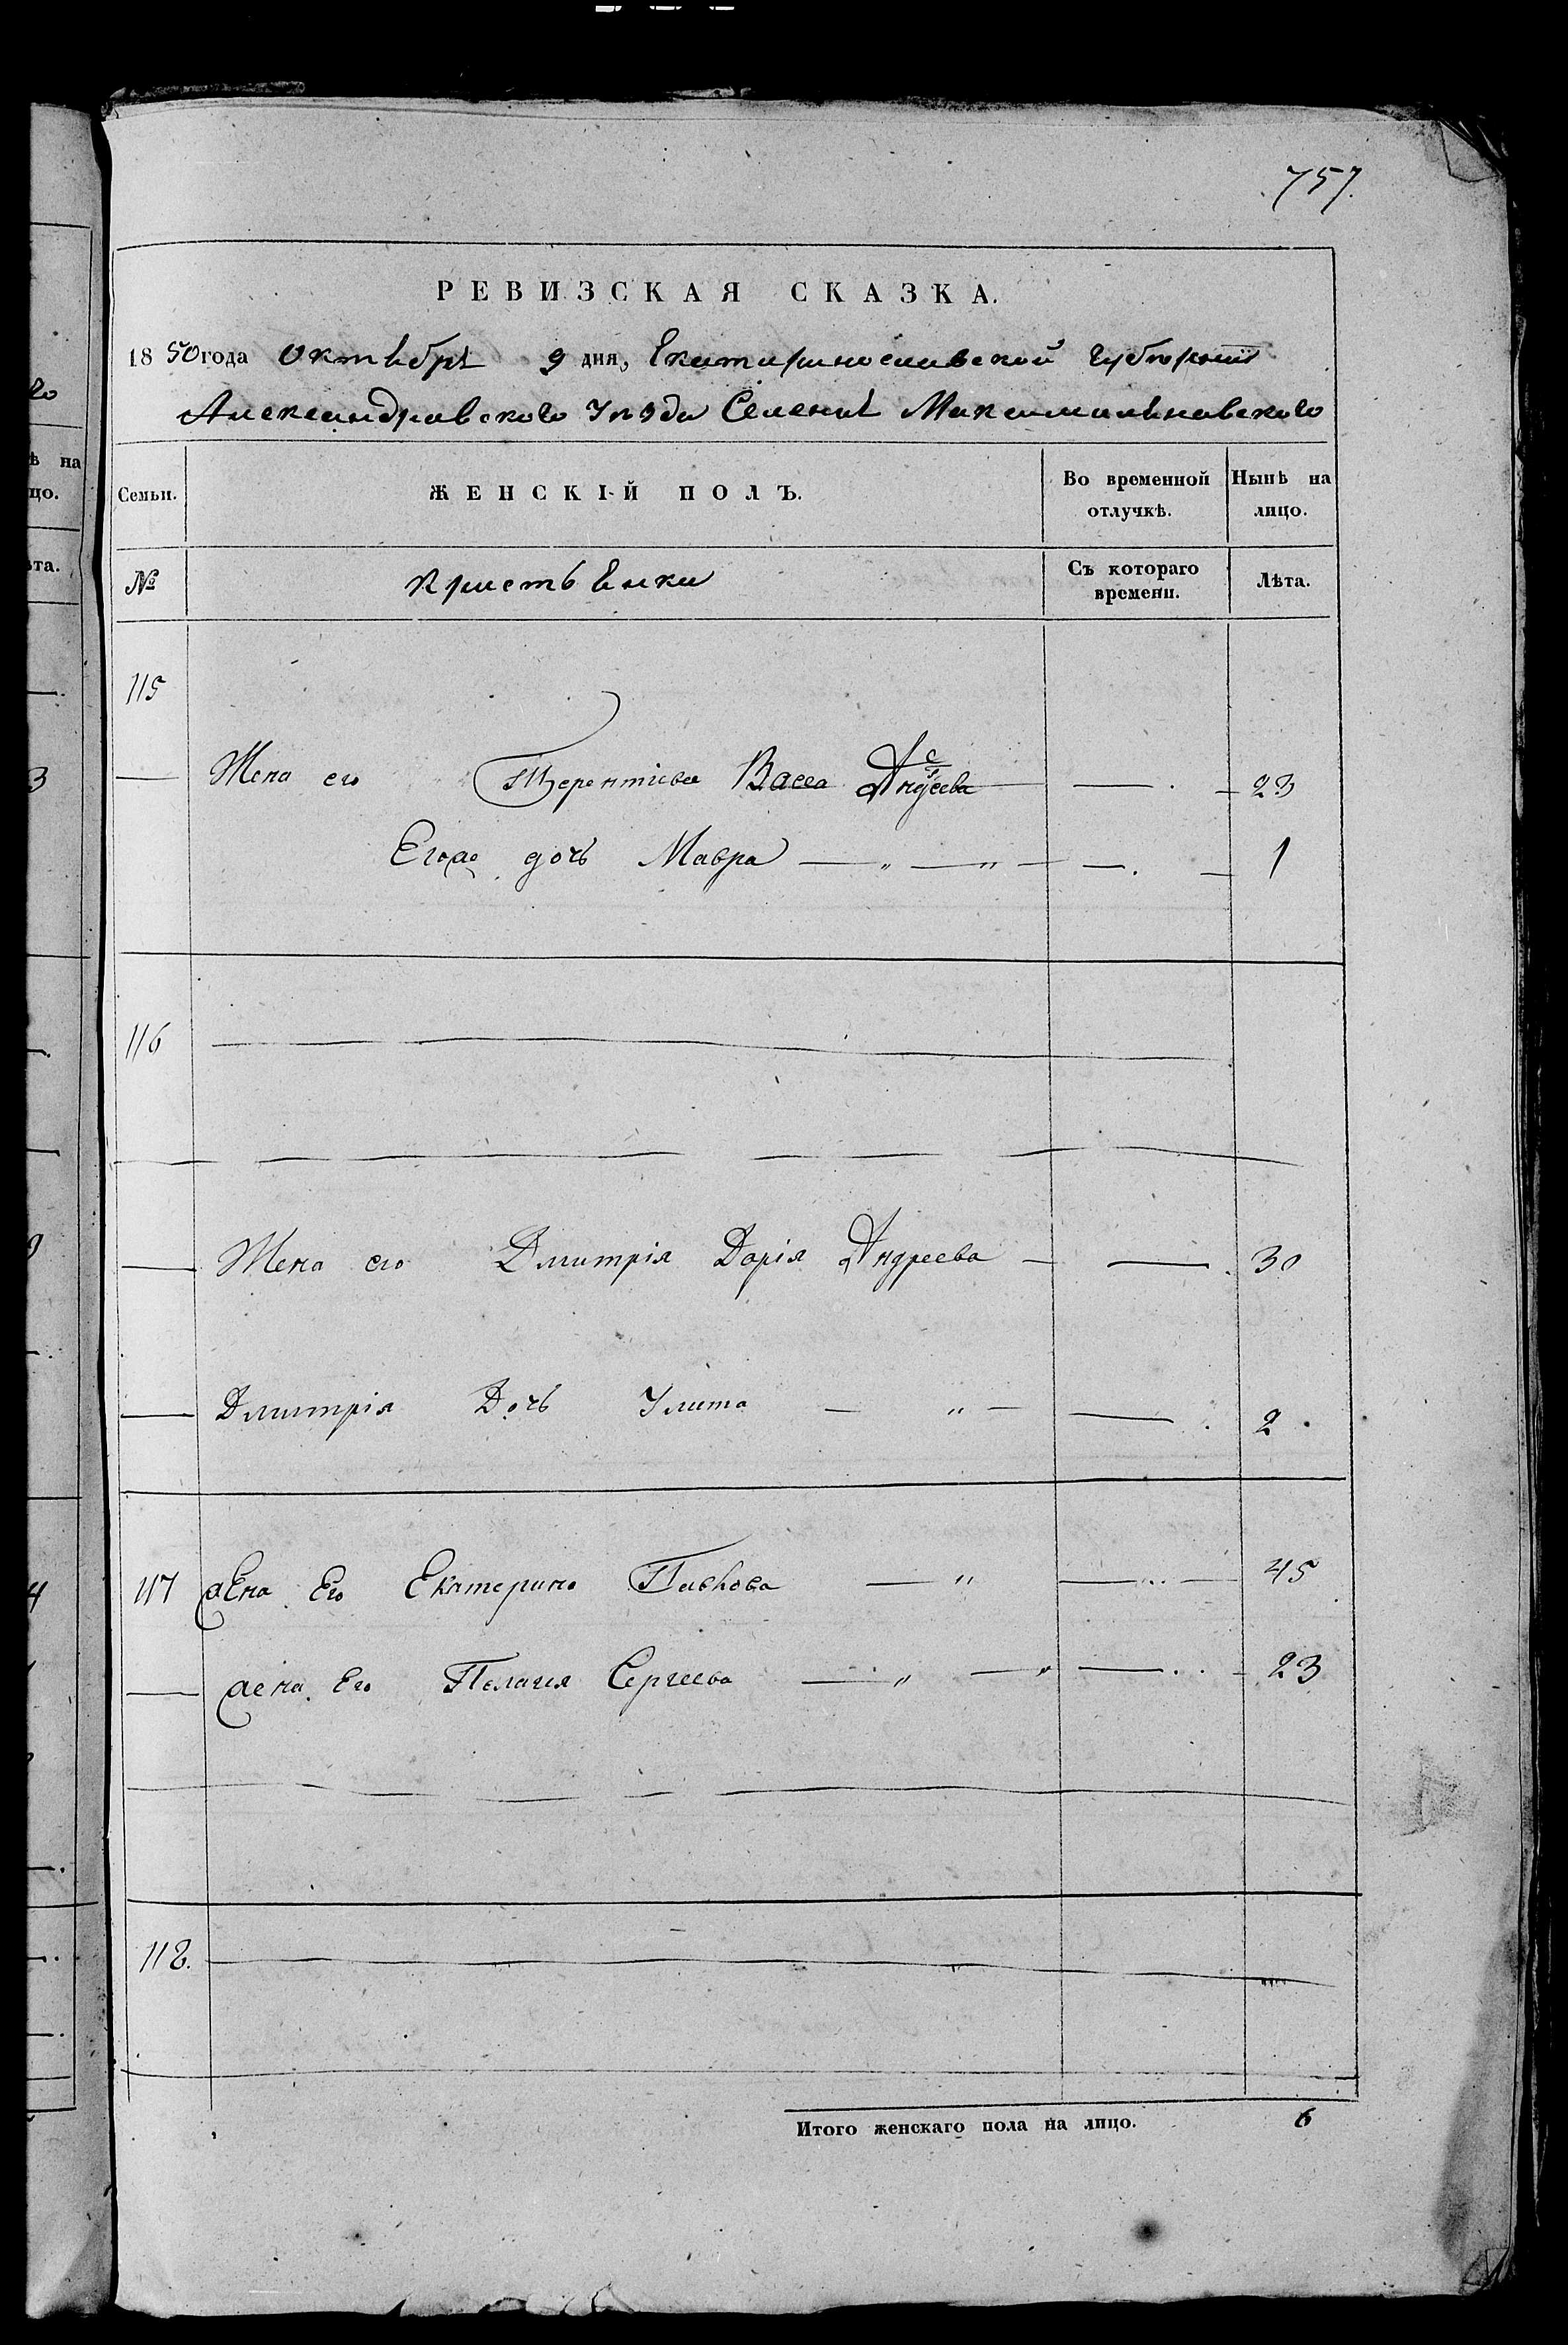 757.
РЕВИЗСКАЯ СКАЗКА.
1850 года Октября 9 дня, Екатеринославской Губернии
Александравского Уезда Селения Максимильяновского
Семьи. ЖЕНСКІЙ ПОЛЪ. Во временной отлучкѣ. Нынѣ на лицо.
№ Кристьянки Съ котораго времени. Лѣта.
115
— Жена его Терентиева Васса — 23
Его дочь Мавра — „ — „ — — 1
116
— Жена его Дмитрія Дарія Андреева — — 30
— Дмитрія Дочь Улита — „ — — 2
117 жена Его Екатерина Павлова — „ — 45
— жена Его Пелагия Сергеева — „ — „ — 23
118. —
Итого женскаго пола на лицо. 6